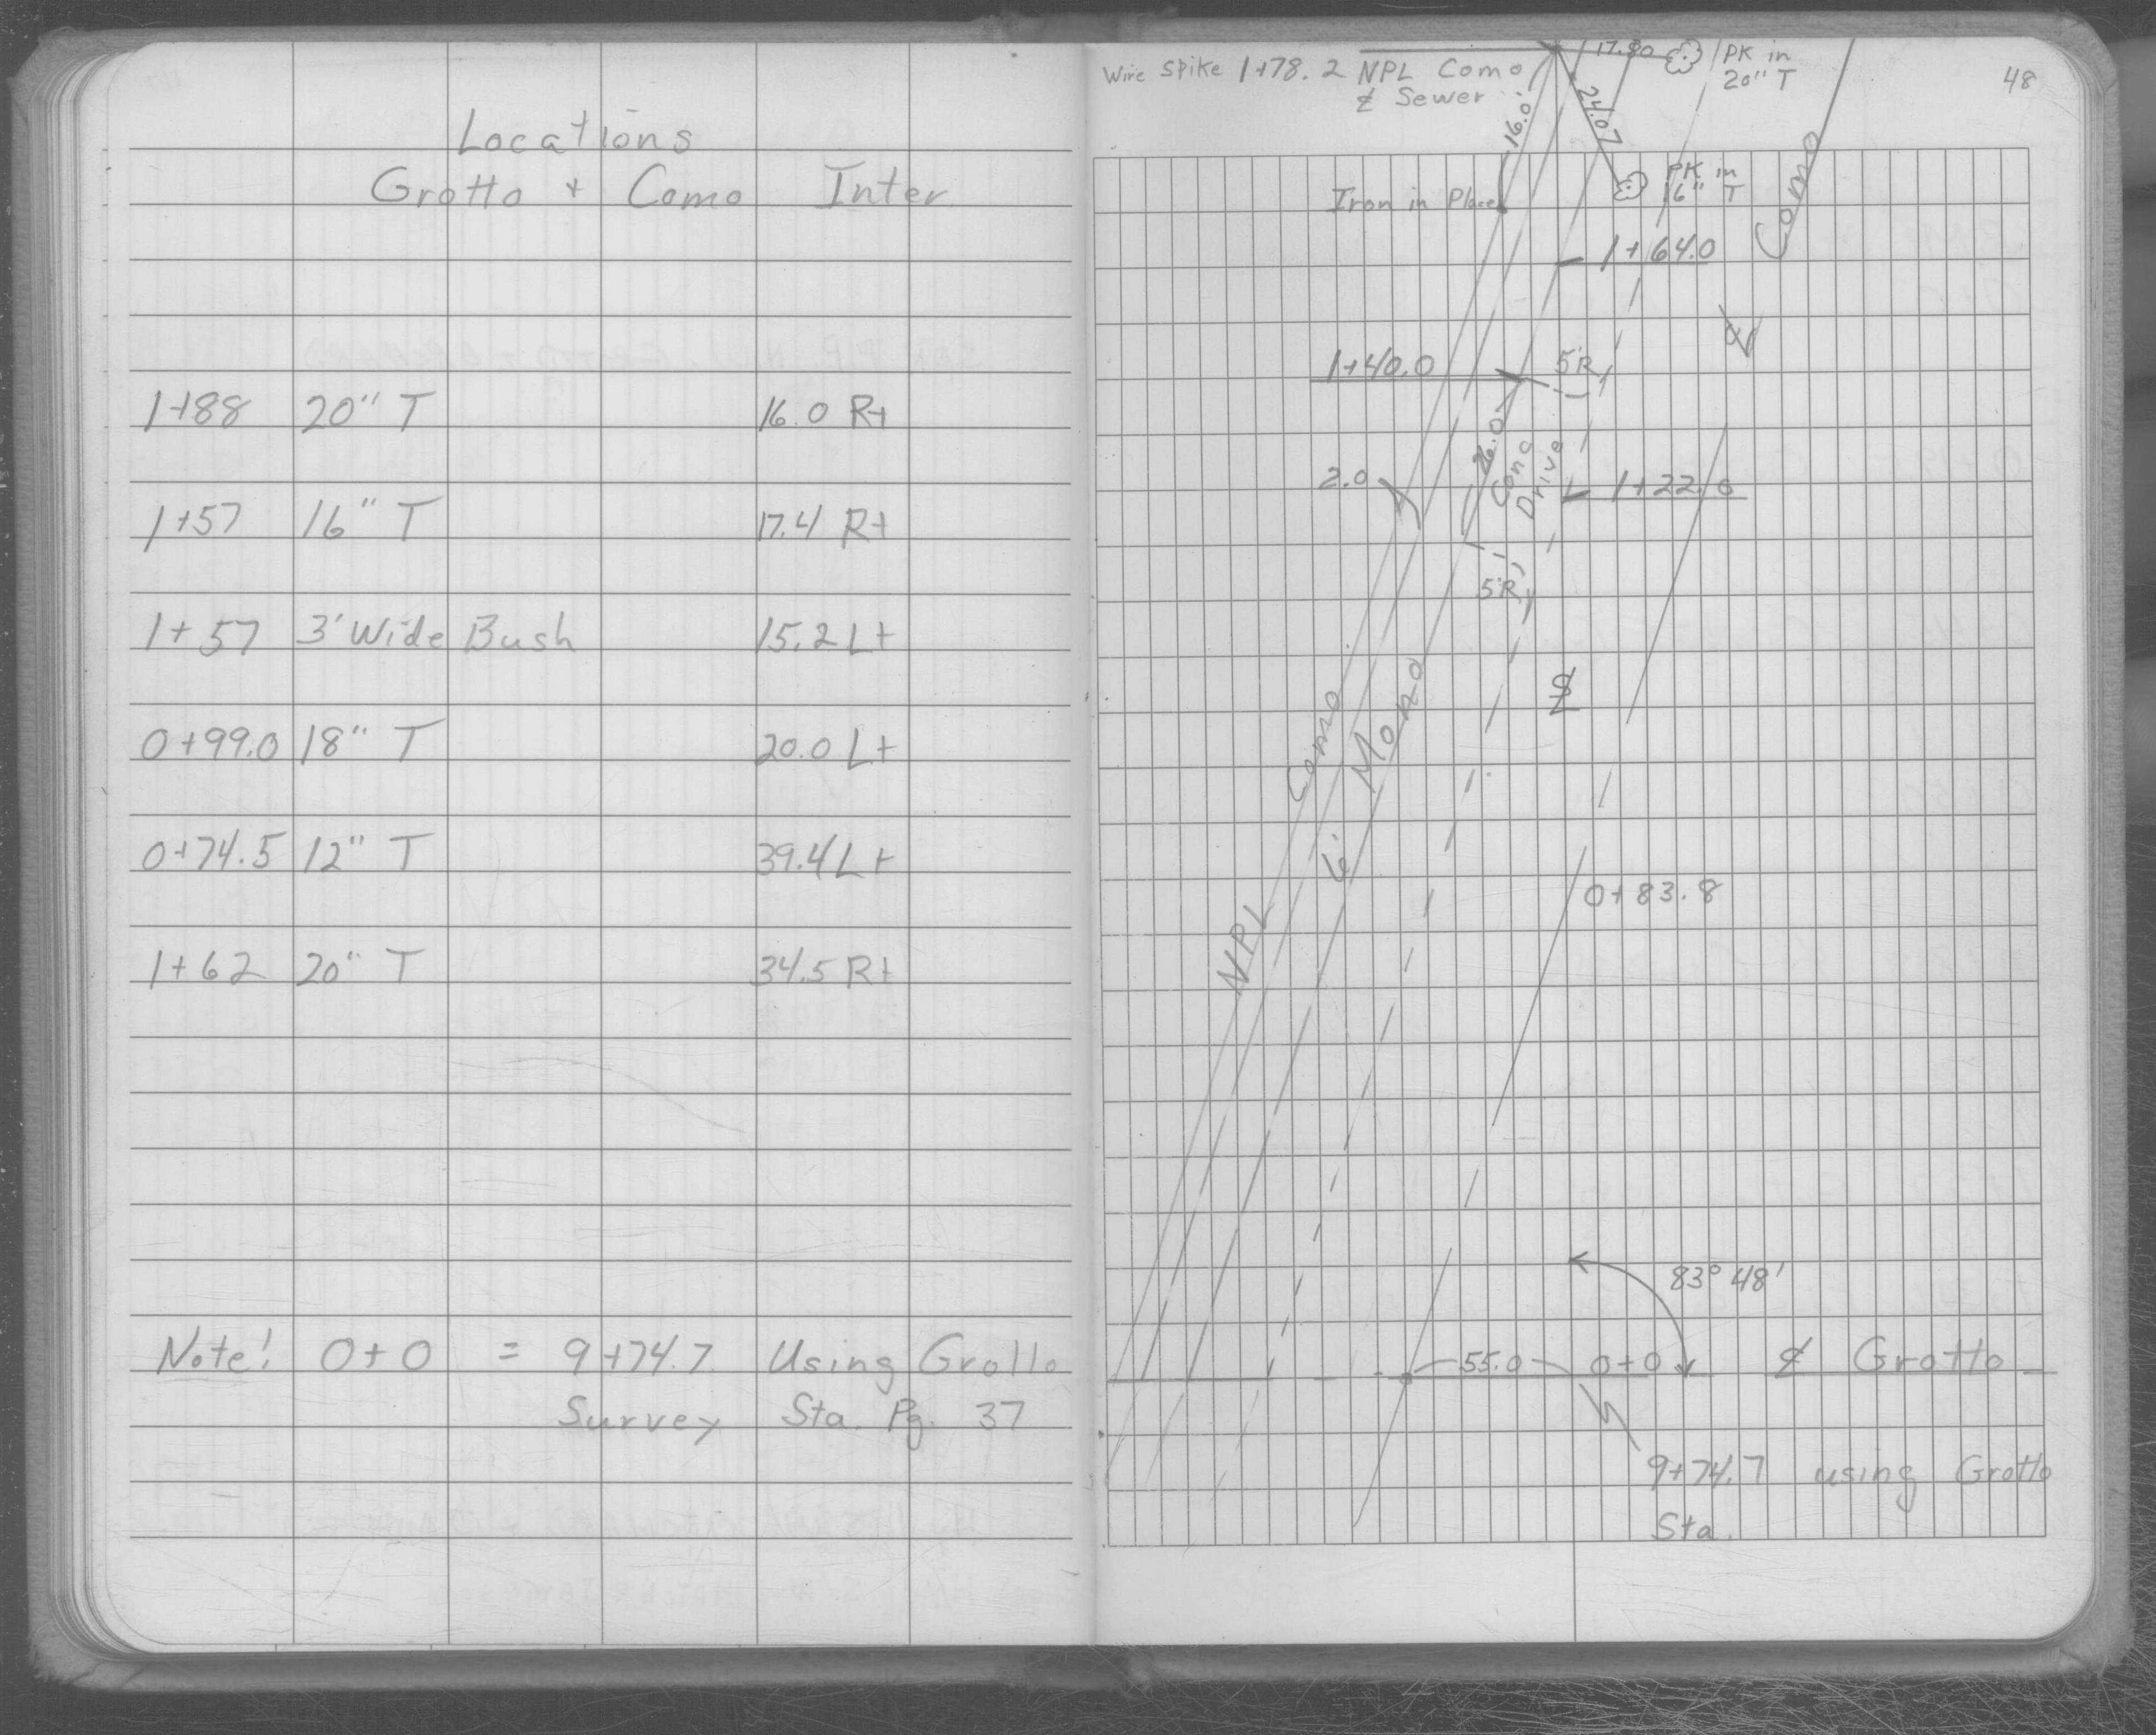 Locations
Grotto + Como Inter
1+88 20" T 16.0 Rt
1+57 16" T 17.4 Rt
1+57 3' Wide Bush 15.2 Lt
0+99.0 18" T 20.0 Lt
0+74.5 12" T 39.4 Lt
1+62 20" T 34.5 Rt
Note! 0+0 = 9+74.7 Using Grotto
Survey Sta. Pg. 37
48
Wire Spike 1+78.2 NPL Como
℄ Sewer
17.80
PK in
20" T
16.0
24.07
PK in
16" T
Iron in Place
Como
1+64.0
℄
1+40.0
5'R
26.0
Conc
Drive
2.0
1+22.0
5'R
℄
NPL Como
6' Mono
0+83.8
83° 48'
55.0 0+0 ℄ Grotto
9+74.7 using Grotto
Sta.